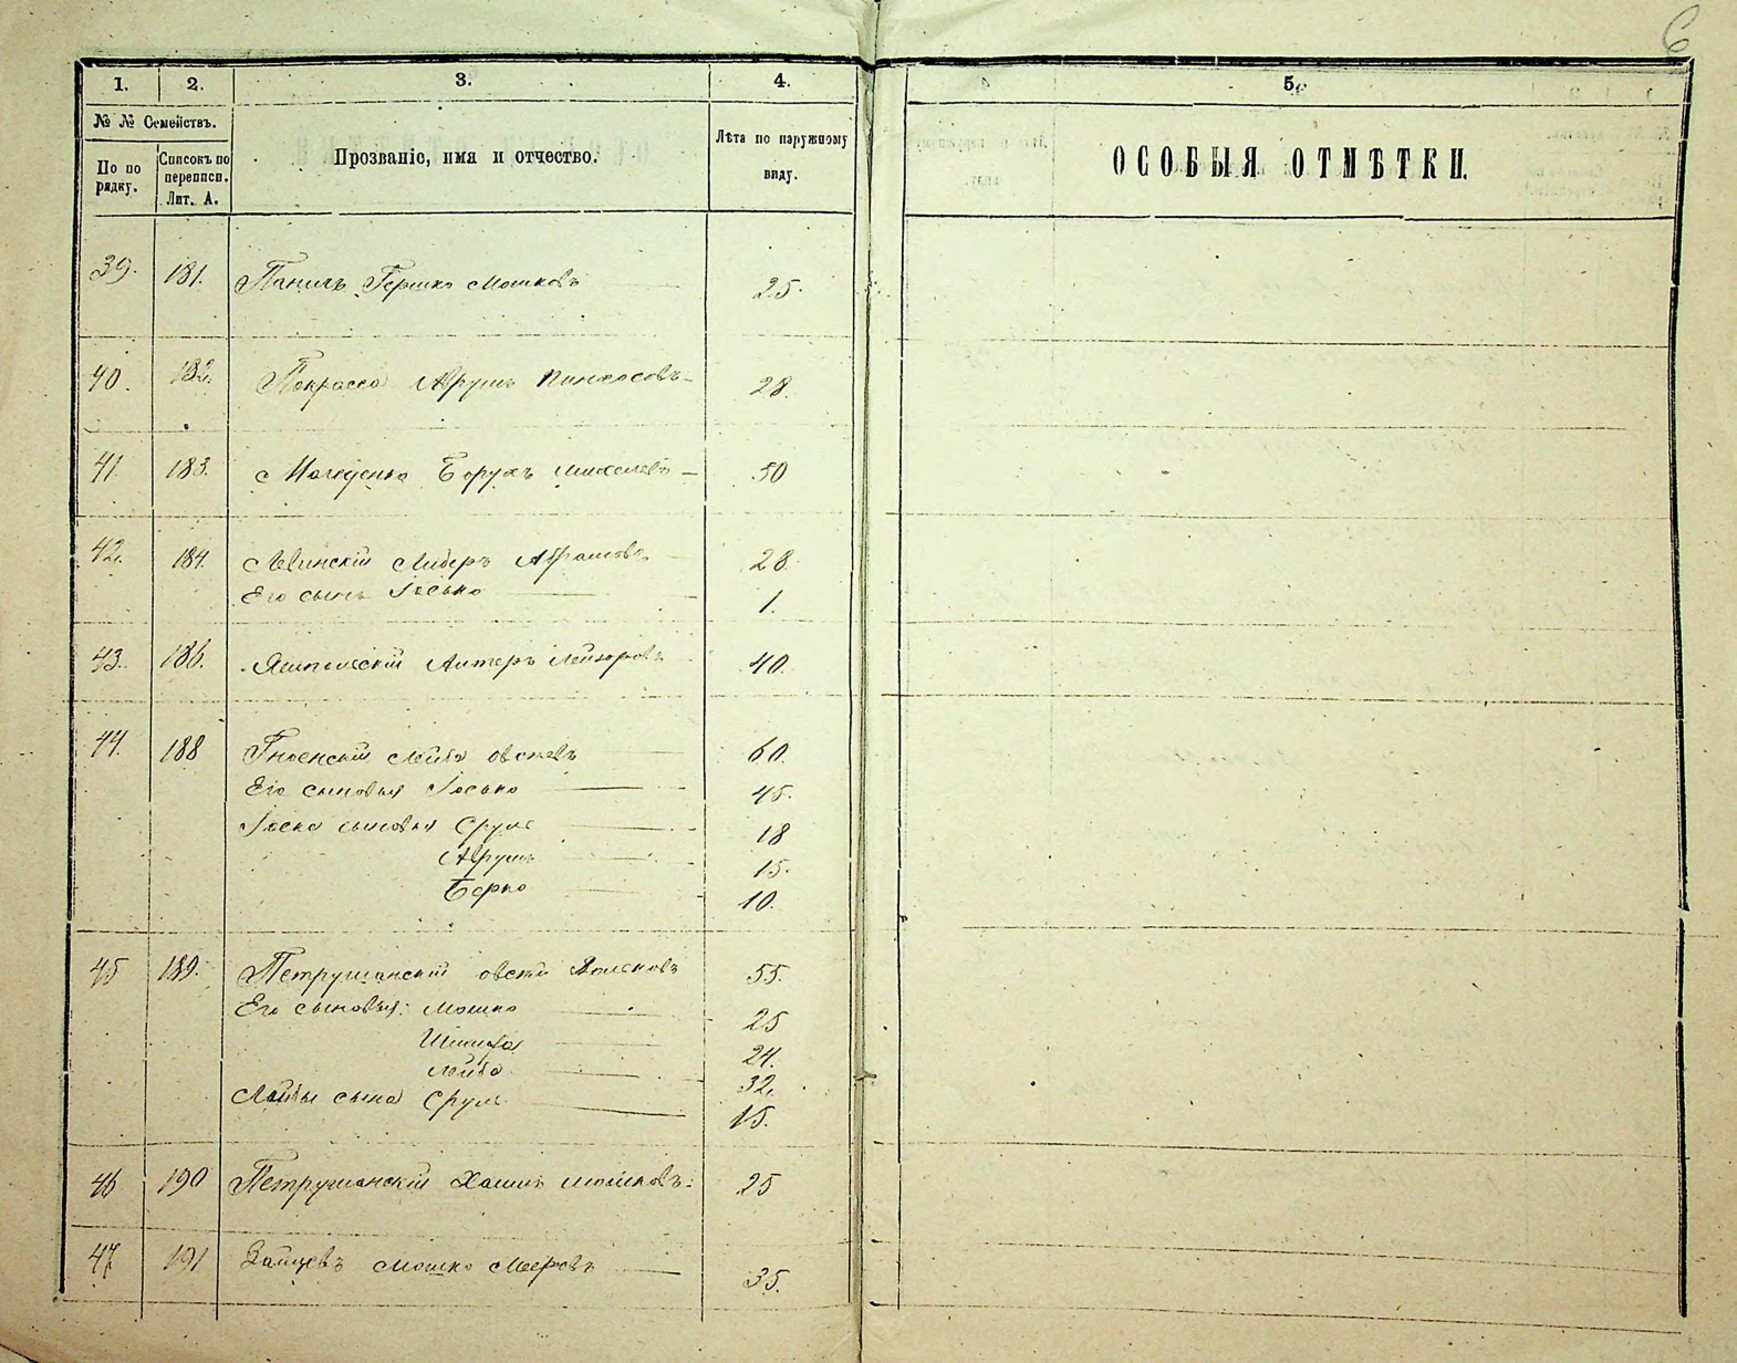 6
1. 2. 3. 4. 5.
№ № Семействъ.
По по рядку.
Списокъ по переписи. Лит. А.
Прозваніе, имя и отчество.
Лѣта по наружному виду.
ОСОБЫЯ ОТМѢТКИ.
39. 181. Гершко Мошковъ 25.
40. 182. Покрасса Аврумъ Пинхосовъ 28.
41. 183. Борухъ 50
42. 184. Абрамовъ 28.
Его сынъ Іосько 1.
43. 186. Лейзоровъ 40.
44. 188 Гноенскій Лейба Овсіевъ 60.
Его сыновья Іосько 45.
Іоська сыновья Сруль 18
Аврумъ 15.
Берко 10.
45 189. Петрушанскій Овсій 55.
Его сыновья: Мошко 25
24.
Лейба 32.
Лейбы сынъ Сруль 15.
46 190 Петрушанскій Хаимъ Мошковъ. 25
47 191 Зайцевъ Мошко Мееровъ 35.